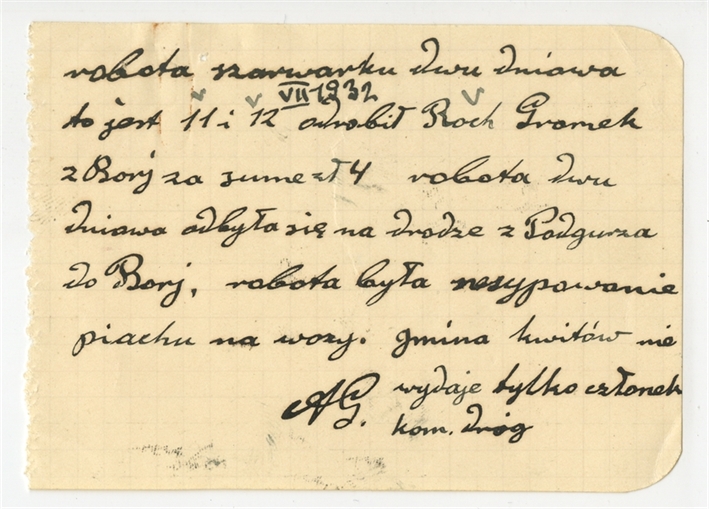 robota szarwarku dwu dniowa
VII 1932
to jest 11 i 12 odrobił Roch Gromek
z Borj za sume zł 4 robota dwu
dniowa odbyła się na drodze z Podgurza
do Borj, robota była nasypowanie
piachu na wozy. gmina kwitów nie
wydaje tylko członek
AG. kom. dróg